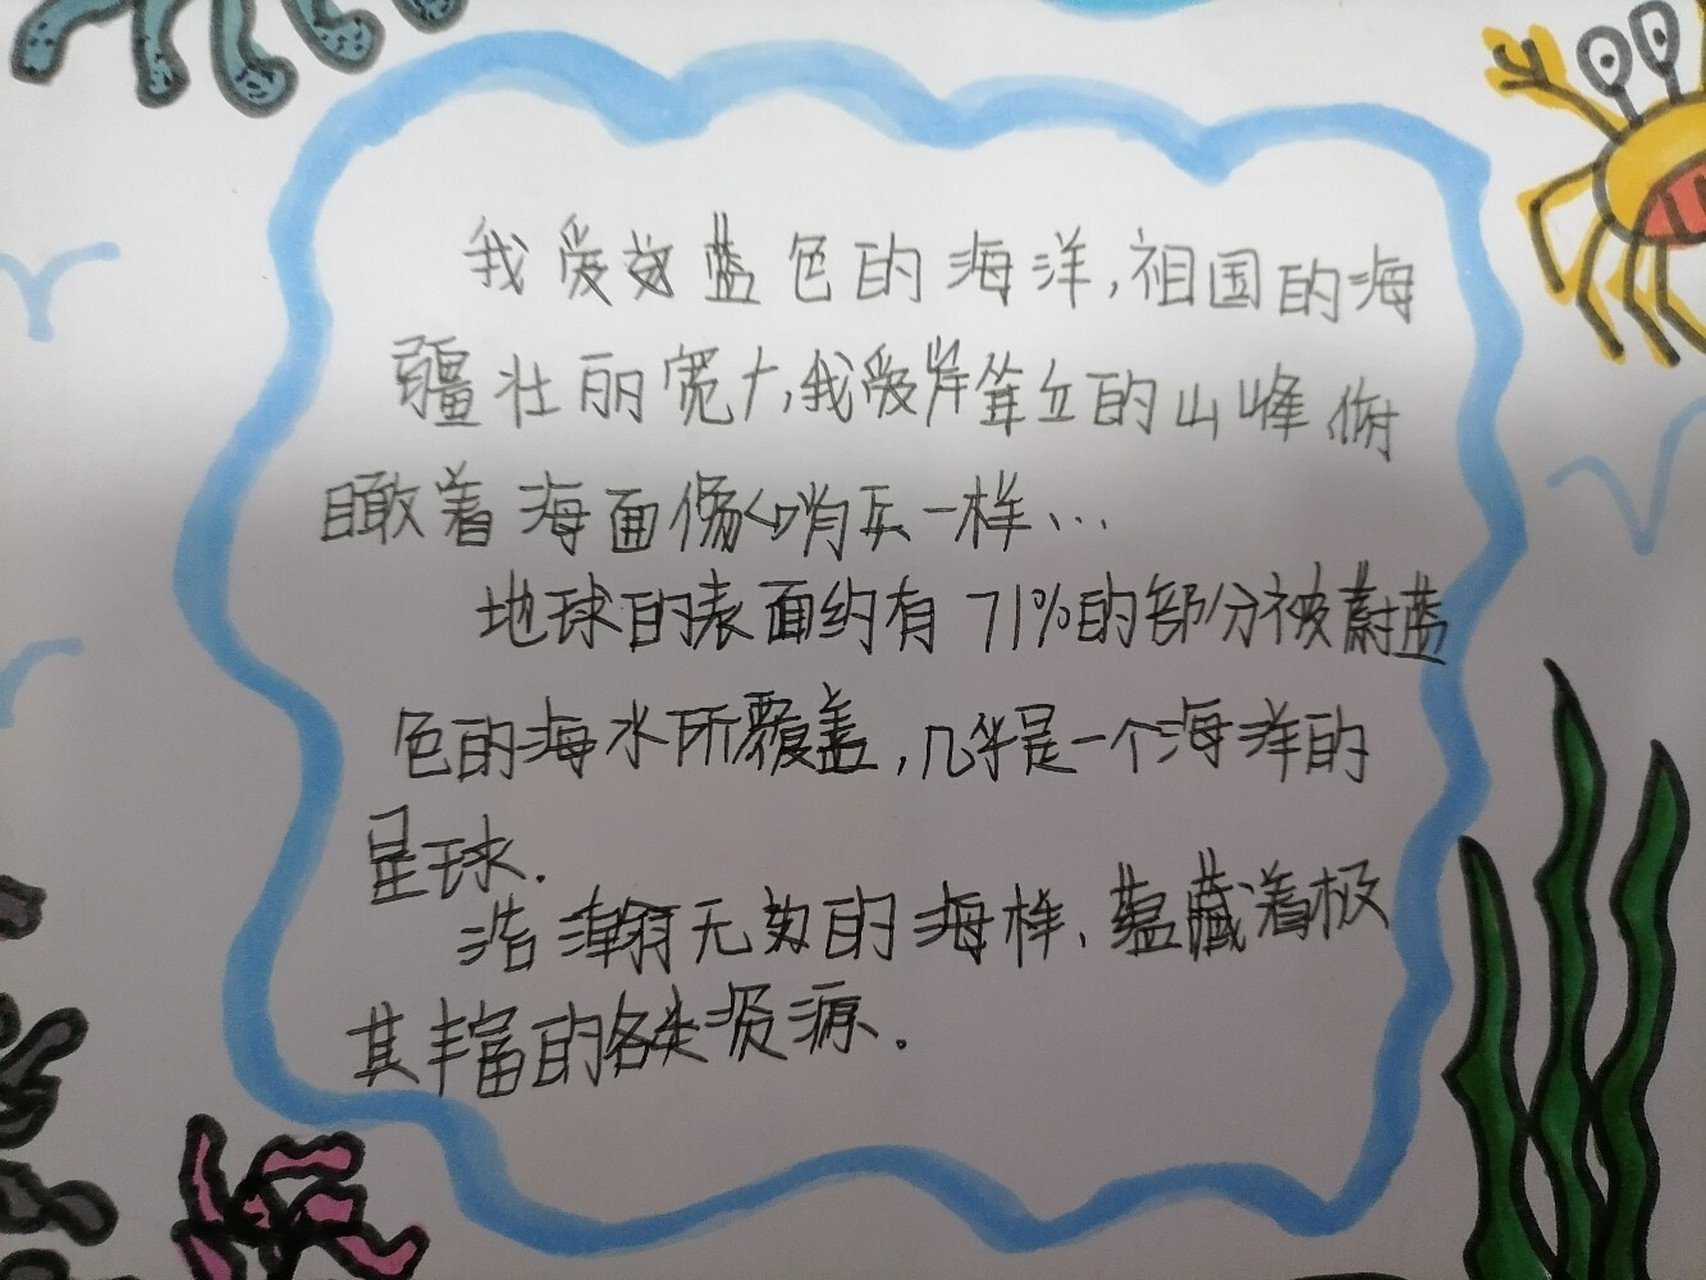 我爱蓝色的海洋,祖国的海
疆壮丽宽大,我爱岸耸立的山峰俯
瞰着海面像哨兵一样…
地球的表面约有71%的部分被蔚蓝
色的海水所覆盖,几乎是一个海洋的
星球.
浩瀚无边的海样、蕴藏着极
其丰富的各类资源.